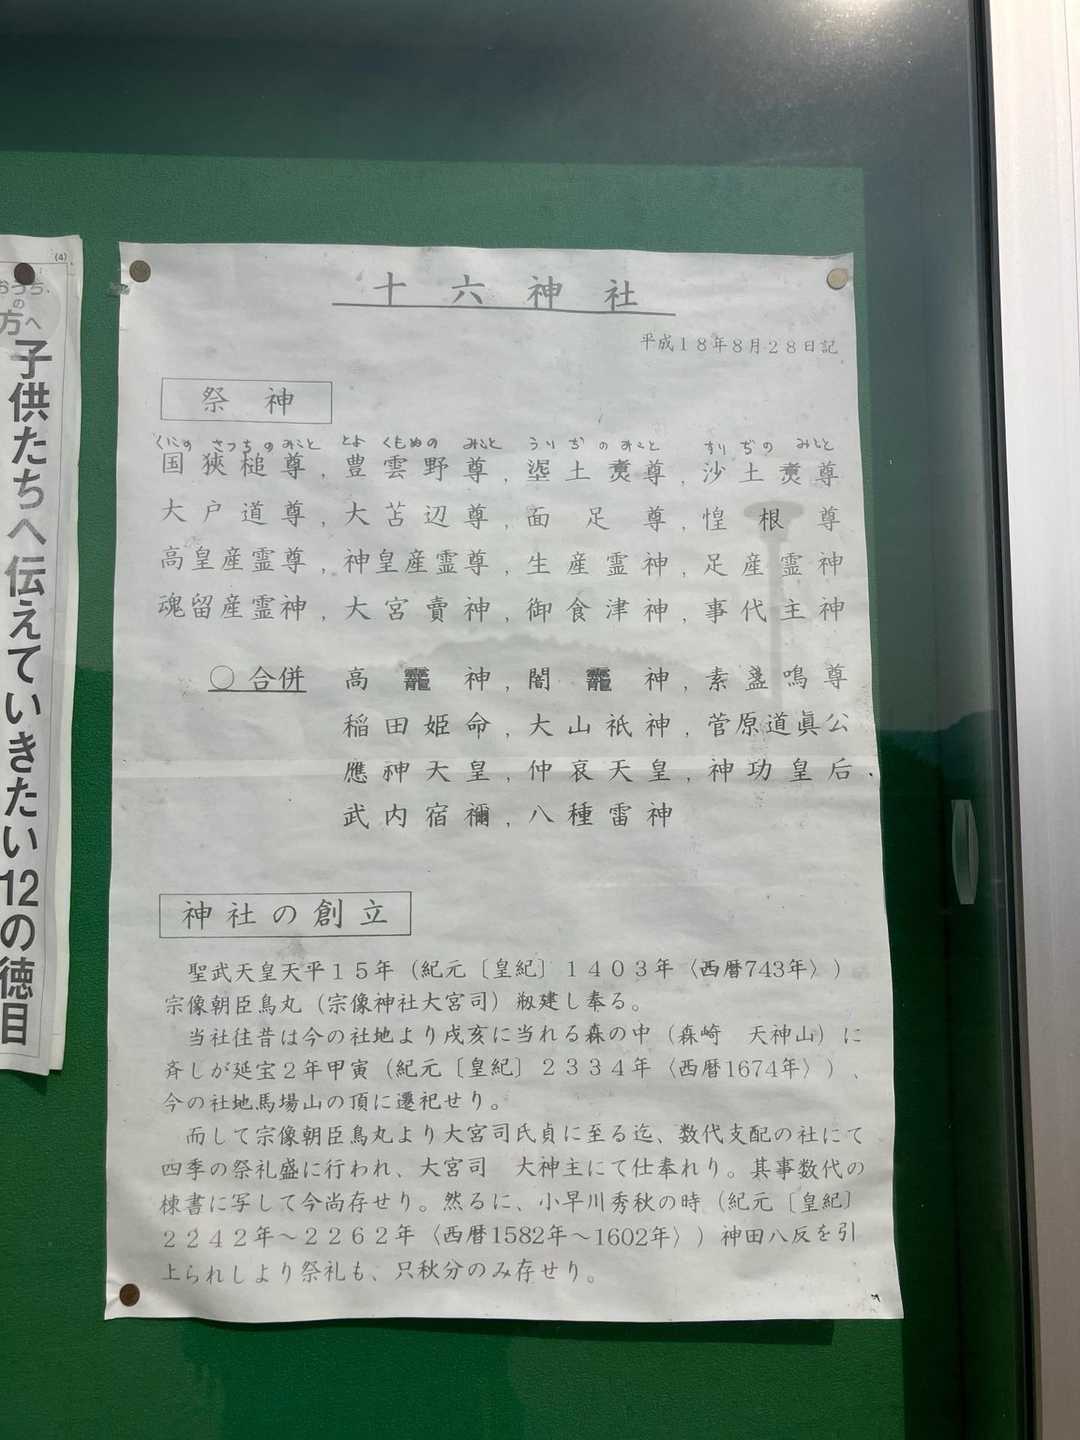 十六神社
平成18年8月28日記
祭神
くにの さつちのみこと とよ くもぬの みこと うりぢのみこと すりぢの みこと
国狭槌尊,豊雲野尊,埿土煑尊,沙土煑尊
大戸道尊,大苫辺尊,面足尊,惶根尊
高皇産霊尊,神皇産霊尊,生産霊神,足産霊神
魂留産霊神,大宮賣神,御食津神,事代主神
○合併 高龗神,闇龗神,素盞鳴尊
稲田姫命,大山祇神,菅原道眞公
應神天皇,仲哀天皇,神功皇后.
武内宿禰,八種雷神
神社の創立
聖武天皇天平15年(紀元〔皇紀〕1403年〈西暦743年〉)
宗像朝臣鳥丸(宗像神社大宮司)剏建し奉る。
当社往昔は今の社地より戌亥に当れる森の中(森崎 天神山)に
斉しが延宝2年甲寅(紀元〔皇紀〕2334年〈西暦1674年〉)、
今の社地馬場山の頂に遷祀せり。
而して宗像朝臣鳥丸より大宮司氏貞に至る迄、数代支配の社にて
四季の祭礼盛に行われ、大宮司 大神主にて仕奉れり。其事数代の
棟書に写して今尚存せり。然るに、小早川秀秋の時(紀元〔皇紀〕
2242年～2262年〈西暦1582年～1602年〉)神田八反を引
上られしより祭礼も、只秋分のみ存せり。
(4)
おうちの
方へ
子供たちへ伝えていきたい12の徳目